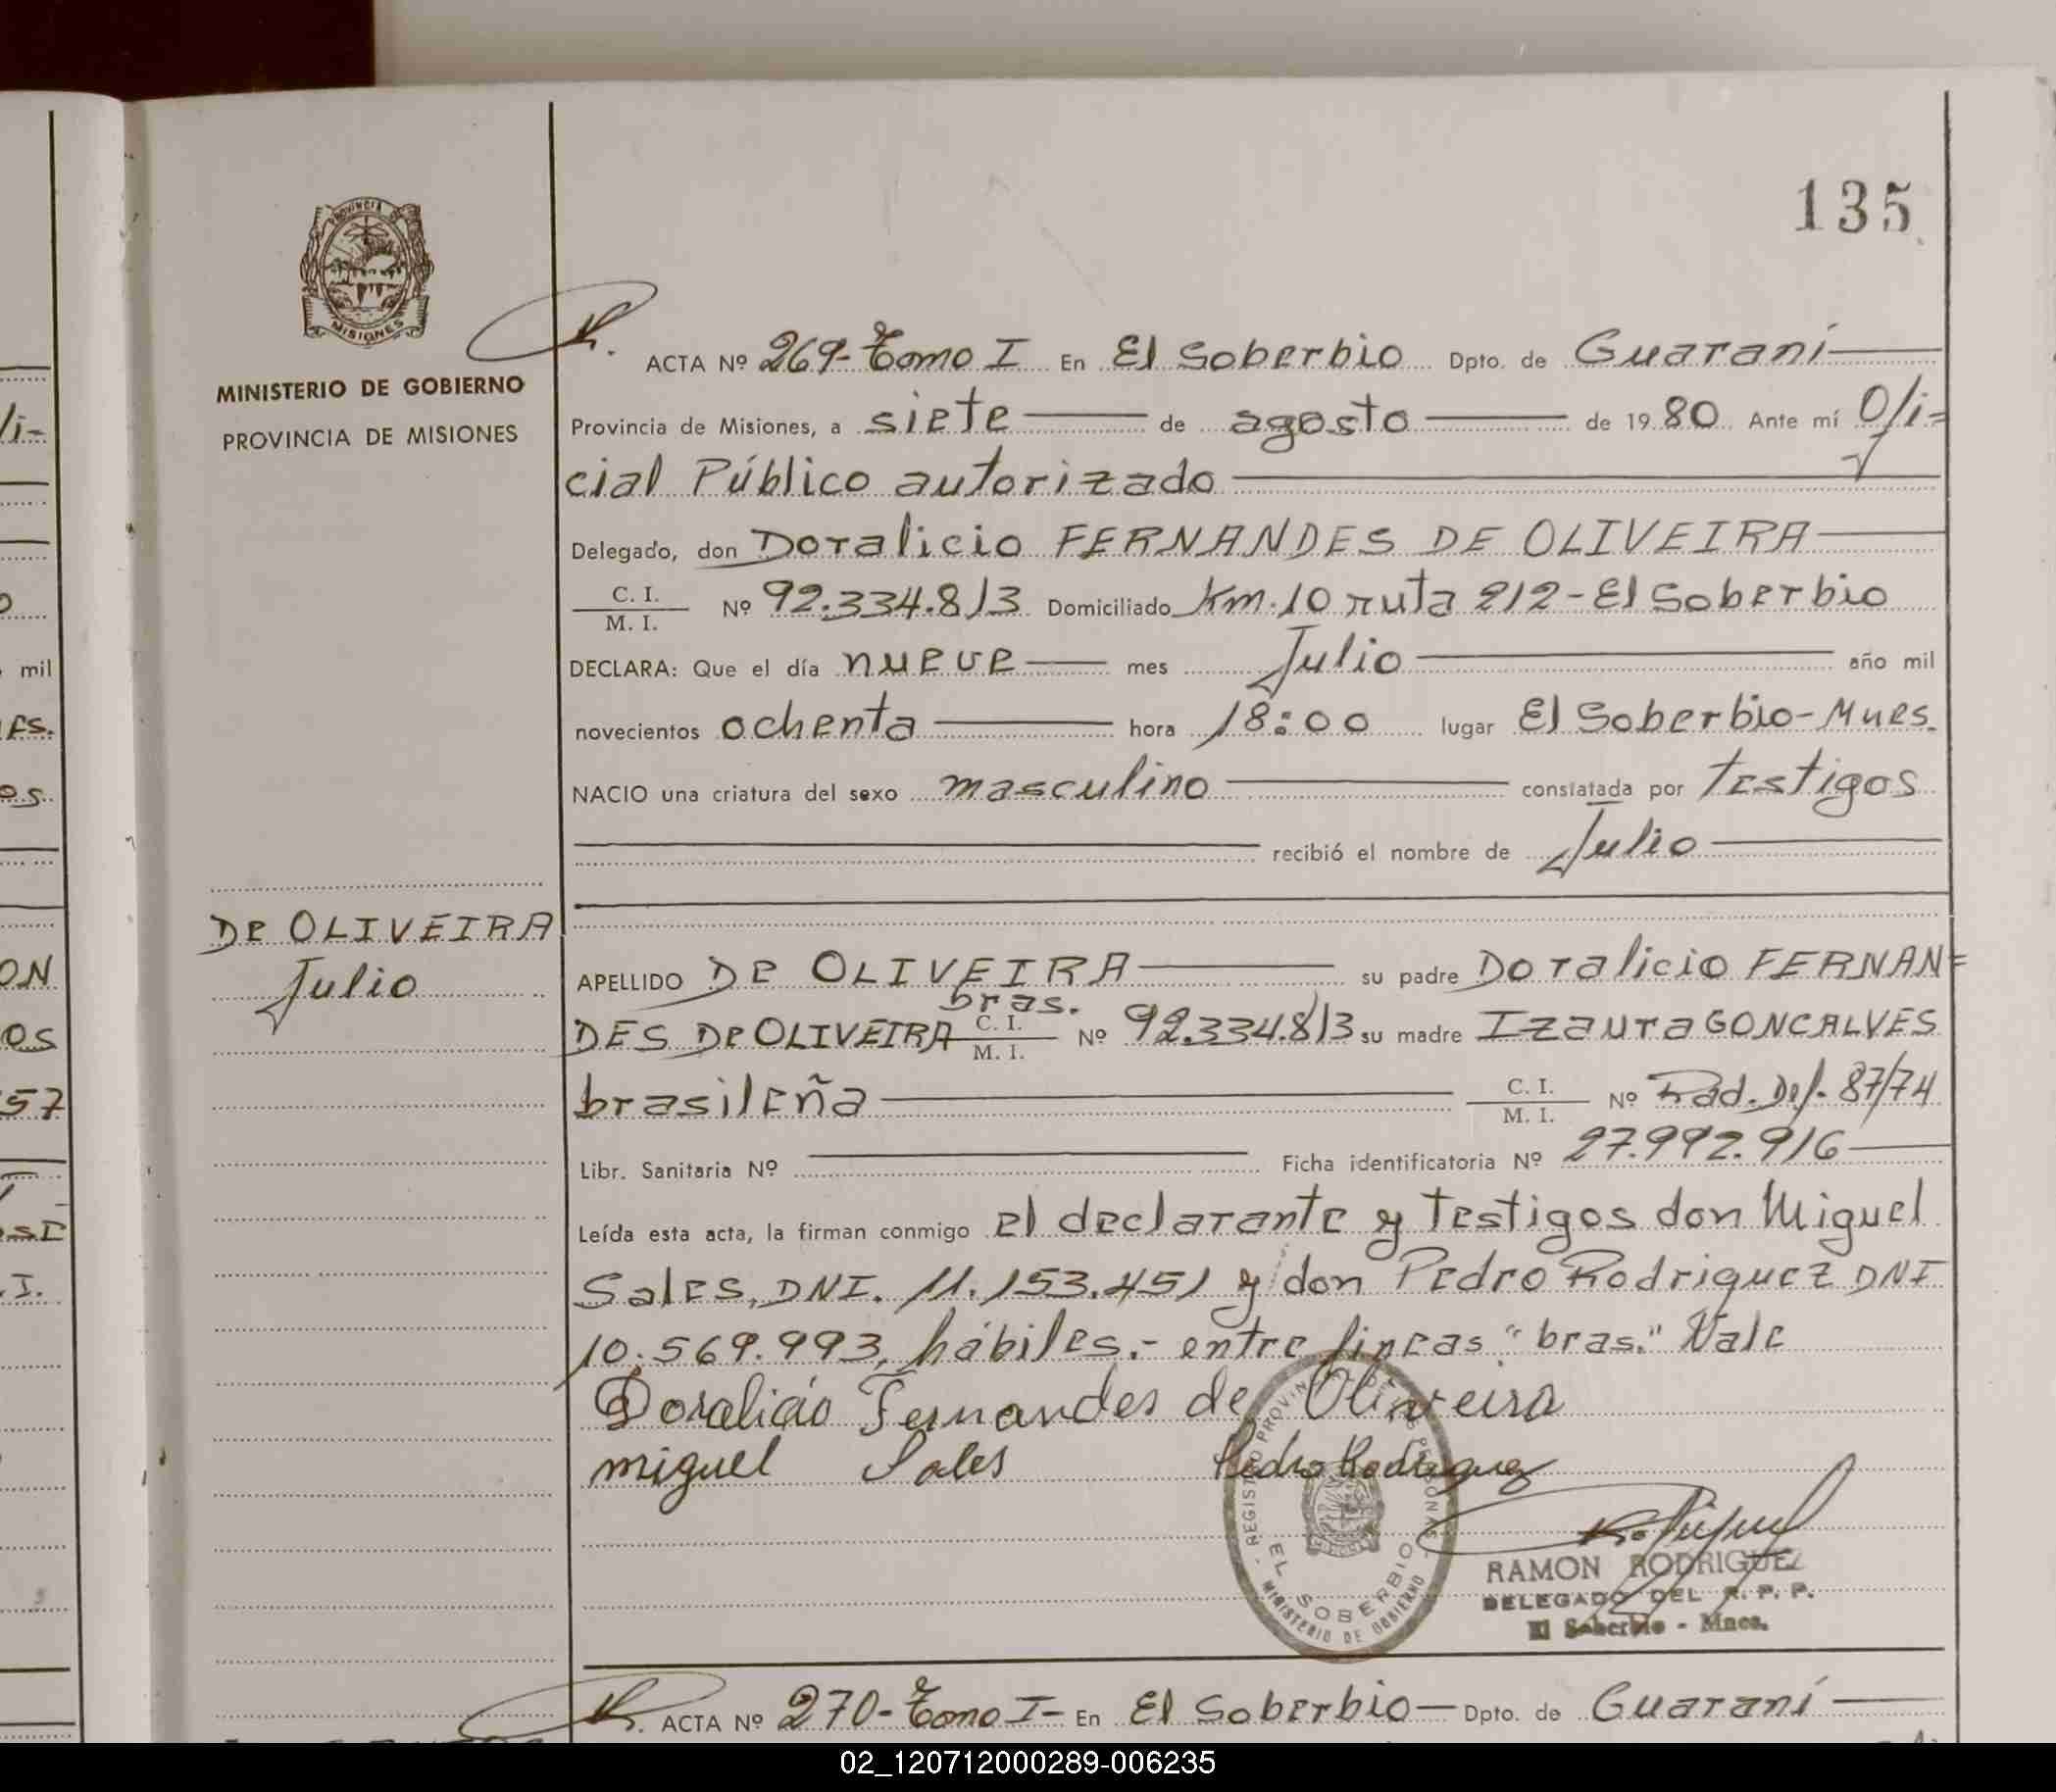 135
PROVINCIA DE
MISIONES
MINISTERIO DE GOBIERNO
PROVINCIA DE MISIONES
ACTA Nº 269-Tomo I En El Soberbio Dpto. de Guaraní
Provincia de Misiones, a siete de agosto de 19 80 Ante mí Ofi=
cial Público autorizado
Delegado, don Doralicio FERNANDES DE OLIVEIRA
C. I.
M. I. Nº 92.334.813 Domiciliado Km.10 ruta 212-El Soberbio
DECLARA: Que el día nueve mes Julio año mil
novecientos ochenta hora 18:00 lugar El Soberbio-Mnes.
NACIO una criatura del sexo masculino constatada por testigos
recibió el nombre de Julio
De OLIVEIRA
Julio
APELLIDO De OLIVEIRA su padre Doralicio FERNAN=
bras.
DES De OLIVEIRA C. I. M. I. Nº 92.334.813 su madre Izaura GONCALVES
brasileña C. I. M. I. Nº Rad. Def. 87/74
Libr. Sanitaria Nº Ficha identificatoria Nº 27.992.916
Leída esta acta, la firman conmigo el declarante y testigos don Miguel
Sales, DNI. 11.153.451 y don Pedro Rodriguez DNI
10.569.993, hábiles.- entre lineas "bras." Vale
Doralicio Fernandes de Oliveira
miguel Sales Pedro Rodriguez
REGISTRO PROVINCIAL DE LAS PERSONAS
EL SOBERBIO
MINISTERIO DE GOBIERNO
RAMON RODRIGUEZ
DELEGADO DEL R. P. P.
El Soberbio - Mnes.
ACTA Nº 270-Tomo I- En El Soberbio Dpto. de Guaraní
02_120712000289-006235